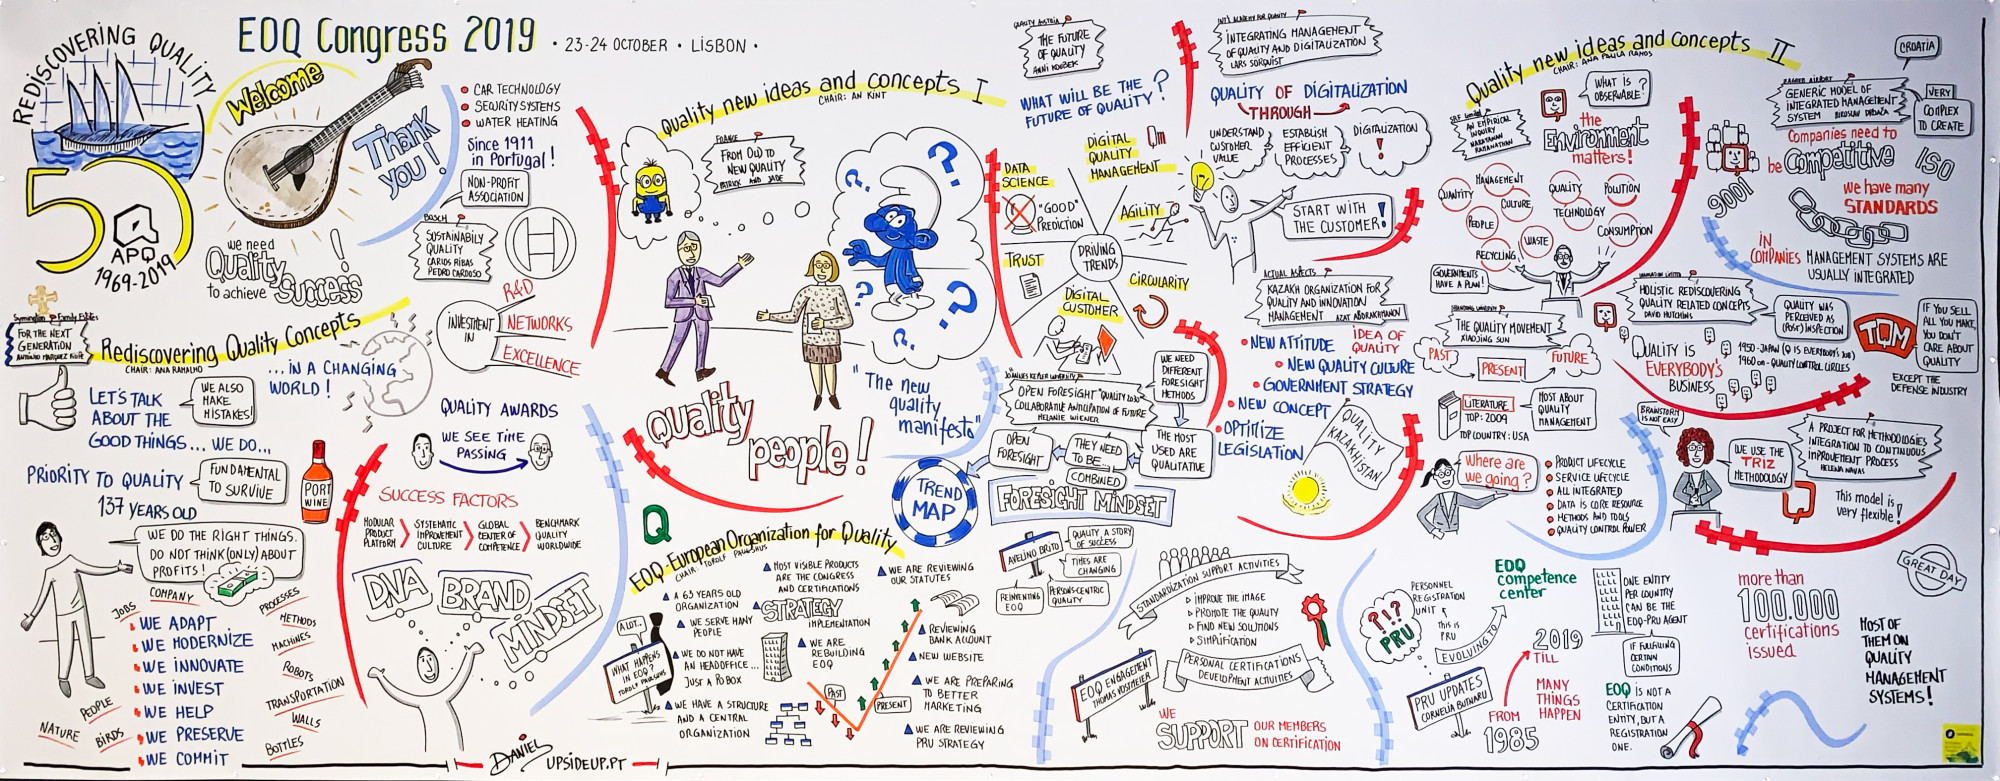 REDISCOVERING QUALITY
50
APQ
1969-2019
EOQ Congress 2019
• 23-24 OCTOBER • LISBON •
Welcome
Thank
you!
we need
Quality
to achieve
Success!
CAR TECHNOLOGY
SECURITY SYSTEMS
WATER HEATING
Since 1911
in Portugal!
NON-PROFIT
ASSOCIATION
BOSCH
SUSTAINABILY
QUALITY
CARLOS RIBAS
PEDRO CARDOSO
INVESTMENT
IN
R&D
NETWORKS
EXCELLENCE
Symington Family Estates
FOR THE NEXT
GENERATION
Rediscovering Quality Concepts
CHAIR: ANA RAMALHO
...IN A CHANGING
WORLD!
LET'S TALK
ABOUT THE
GOOD THINGS... WE DO...
WE ALSO
MAKE
MISTAKES!
PRIORITY TO QUALITY
137 YEARS OLD
FUNDAMENTAL
TO SURVIVE
PORT
WINE
WE DO THE RIGHT THINGS.
DO NOT THINK (ONLY) ABOUT
PROFITS!
COMPANY
JOBS
PROCESSES
METHODS
MACHINES
ROBOTS
TRANSPORTATION
WALLS
BOTTLES
PEOPLE
NATURE
BIRDS
WE ADAPT
WE MODERNIZE
WE INNOVATE
WE INVEST
WE HELP
WE PRESERVE
WE COMMIT
QUALITY AWARDS
WE SEE TIME
PASSING
SUCCESS FACTORS
MODULAR
PRODUCT
PLATFORM
SYSTEMATIC
IMPROVEMENT
CULTURE
GLOBAL
CENTER OF
COMPETENCE
BENCHMARK
QUALITY
WORLDWIDE
DNA
BRAND
MINDSET
DANIEL
UPSIDEUP.PT
Quality new ideas and concepts I
CHAIR: AN KINT
FRANCE
FROM OLD TO
NEW QUALITY
PATRICK AND JADE
"The new
quality
manifesto"
Quality
people!
QUALITY AUSTRIA
THE FUTURE
OF QUALITY
ANNI KOUBEK
WHAT WILL BE THE
FUTURE OF QUALITY?
DRIVING
TRENDS
DATA
SCIENCE
"GOOD"
PREDICTION
DIGITAL
QUALITY
MANAGEMENT
AGILITY
TRUST
DIGITAL
CUSTOMER
CIRCULARITY
JOHANNES KEPLER UNIVERSITY
OPEN FORESIGHT "QUALITY 2030"
COLLABORATIVE ANTICIPATION OF FUTURE
MELANIE WIENER
WE NEED
DIFFERENT
FORESIGHT
METHODS
THE MOST
USED ARE
QUALITATIVE
THEY NEED
TO BE...
COMBINED
OPEN
FORESIGHT
FORESIGHT MINDSET
TREND
MAP
INT'L ACADEMY FOR QUALITY
INTEGRATING MANAGEMENT
OF QUALITY AND DIGITALIZATION
LARS SÖRQVIST
QUALITY OF DIGITALIZATION
THROUGH
UNDERSTAND
CUSTOMER
VALUE
ESTABLISH
EFFICIENT
PROCESSES
DIGITALIZATION
!
START WITH
THE CUSTOMER!
ACTUAL ASPECTS
KAZAKH ORGANIZATION FOR
QUALITY AND INNOVATION
MANAGEMENT AZAT ABDRAKHMANOV
IDEA OF
QUALITY
NEW ATTITUDE
NEW QUALITY CULTURE
GOVERNMENT STRATEGY
NEW CONCEPT
OPTIMIZE
LEGISLATION
QUALITY
KAZAKHSTAN
Quality new ideas and concepts II
CHAIR: ANA PAULA RAMOS
AN EMPIRICAL
INQUIRY
WHAT IS
OBSERVABLE?
the
Environment
matters!
QUANTITY
MANAGEMENT
CULTURE
QUALITY
POLLUTION
PEOPLE
TECHNOLOGY
CONSUMPTION
WASTE
RECYCLING
GOVERNMENTS
HAVE A PLAN!
CROATIA
ZAGREB AIRPORT
GENERIC MODEL OF
INTEGRATED MANAGEMENT
SYSTEM
VERY
COMPLEX
TO CREATE
Companies need to
be Competitive
ISO
9001
we have many
STANDARDS
IN
COMPANIES MANAGEMENT SYSTEMS ARE
USUALLY INTEGRATED
SHANDONG UNIVERSITY
THE QUALITY MOVEMENT
XIAOJING SUN
PAST
PRESENT
FUTURE
LITERATURE
TOP: 2009
TOP COUNTRY: USA
MOST ABOUT
QUALITY
MANAGEMENT
Where are
we going?
PRODUCT LIFECYCLE
SERVICE LIFECYCLE
ALL INTEGRATED
DATA IS CORE RESOURCE
METHODS AND TOOLS
QUALITY CONTROL POWER
HOLISTIC REDISCOVERING
QUALITY RELATED CONCEPTS
DAVID HUTCHINS
QUALITY WAS
PERCEIVED AS
(POST) INSPECTION
TQM
IF YOU SELL
ALL YOU MAKE,
YOU DON'T
CARE ABOUT
QUALITY
EXCEPT THE
DEFENSE INDUSTRY
QUALITY IS
EVERYBODY'S
BUSINESS
1950-JAPAN (Q IS EVERYBODY'S JOB)
1960 on-QUALITY CONTROL CIRCLES
BRAINSTORM
IS NOT EASY
WE USE THE
TRIZ
METHODOLOGY
A PROJECT FOR METHODOLOGIES
INTEGRATION TO CONTINUOUS
IMPROVEMENT PROCESS
HELENA NAVAS
This model is
very flexible!
Q
EOQ-European Organization for Quality
CHAIR: TOROLF PAULSHUS
A LOT...
WHAT HAPPENS
IN EOQ?
TOROLF PAULSHUS
A 63 YEARS OLD
ORGANIZATION
WE SERVE MANY
PEOPLE
WE DO NOT HAVE
AN HEADOFFICE...
JUST A PO BOX
WE HAVE A STRUCTURE
AND A CENTRAL
ORGANIZATION
MOST VISIBLE PRODUCTS
ARE THE CONGRESS
AND CERTIFICATIONS
STRATEGY
IMPLEMENTATION
WE ARE
REBUILDING
EOQ
PAST
PRESENT
WE ARE REVIEWING
OUR STATUTES
REVIEWING
BANK ACCOUNT
NEW WEBSITE
WE ARE PREPARING
TO BETTER
MARKETING
WE ARE REVIEWING
PRU STRATEGY
AVELINO BRITO
QUALITY, A STORY
OF SUCCESS
TIMES ARE
CHANGING
REINVENTING
EOQ
PERSONS-CENTRIC
QUALITY
STANDARDIZATION SUPPORT ACTIVITIES
IMPROVE THE IMAGE
PROMOTE THE QUALITY
FIND NEW SOLUTIONS
SIMPLIFICATION
PERSONAL CERTIFICATIONS
DEVELOPMENT ACTIVITIES
EOQ ENGAGEMENT
WE
SUPPORT OUR MEMBERS
ON CERTIFICATION
?!?
PRU
PERSONNEL
REGISTRATION
UNIT
THIS IS
PRU
EVOLVING TO
EOQ
competence
center
PRU UPDATES
CORNELIA BUTNARU
FROM
1985
2019
TILL
MANY
THINGS
HAPPEN
ONE ENTITY
PER COUNTRY
CAN BE THE
EOQ-PRU AGENT
IF FULFILLING
CERTAIN
CONDITIONS
EOQ IS NOT A
CERTIFICATION
ENTITY, BUT A
REGISTRATION
ONE.
more than
100.000
certifications
issued
MOST OF
THEM ON
QUALITY
MANAGEMENT
SYSTEMS!
GREAT DAY